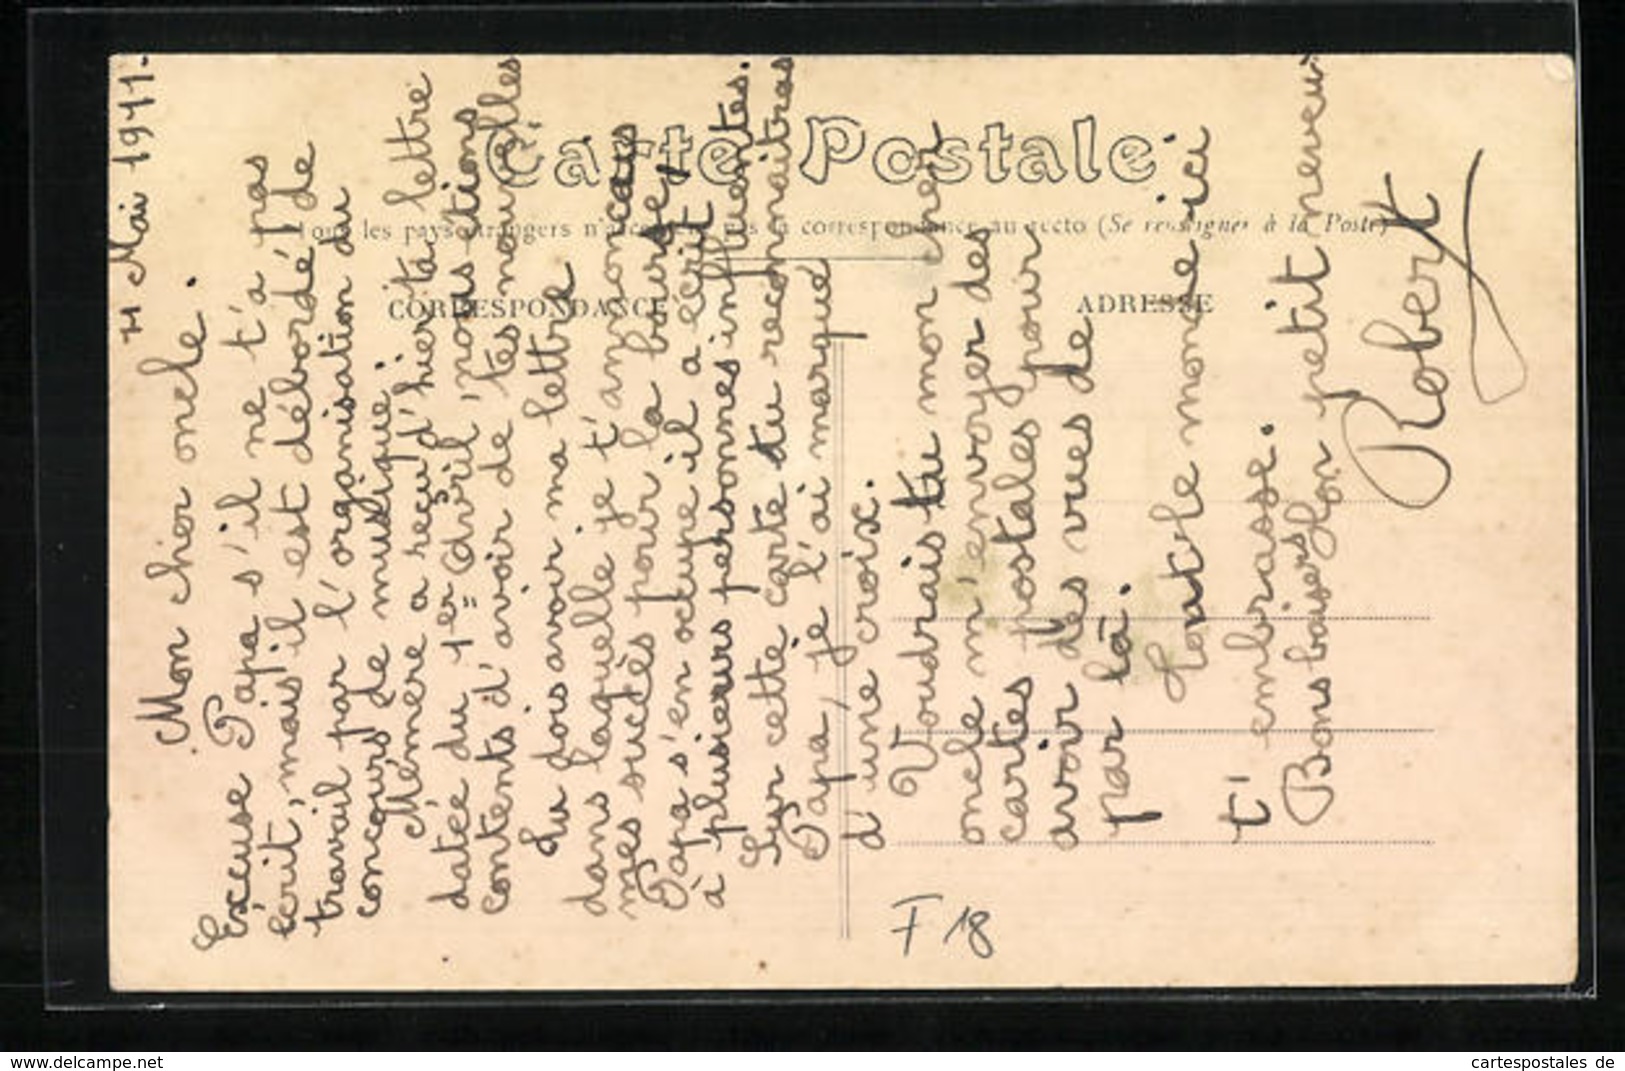 4 Mai 1911.
Mon cher oncle.
Excuse Papa s'il ne t'a pas
écrit, mais il est débordé de
travail par l'organisation du
concours de musique.
Mémère a reçu d'hier ta lettre
datée du 1er Avril, nous étions
contents d'avoir de tes nouvelles
Tu dois avoir ma lettre
dans laquelle je t'annonçais
mes succès pour la bourse,
Papa s'en occupe il a écrit
à plusieurs personnes influentes.
Sur cette carte tu reconnaitras
Papa, je l'ai marqué
d'une croix.
Voudrais tu mon cher
oncle m'envoyer des
cartes postales pour
avoir des vues de
par là.
Tout le monde ici
t'embrasse.
Bons baisers Ton petit neveu
Robert
Carte Postale
Tous les pays étrangers n'acceptent pas la correspondance au recto (Se renseigner à la Poste)
CORRESPONDANCE
ADRESSE
F 18
www.delcampe.net
cartespostales de